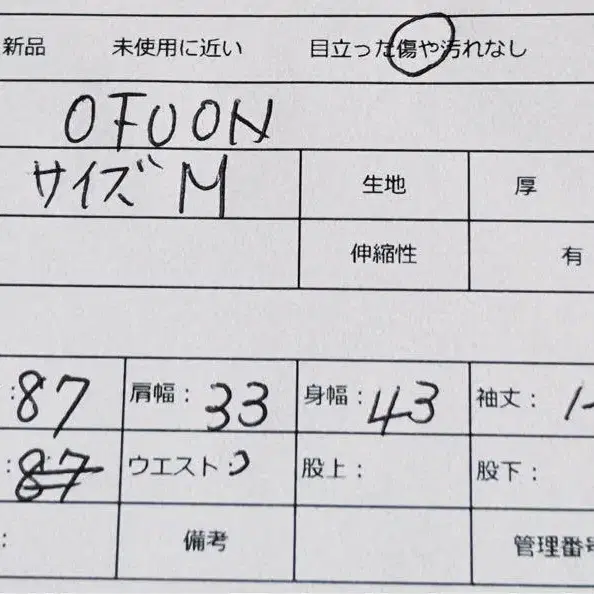 新品 未使用に近い 目立った傷や汚れなし
OFUON
サイズ M 生地 厚
伸縮性 有
:87 肩幅:33 身幅:43 袖丈:
:87 ウエスト: 股上: 股下:
: 備考 管理番